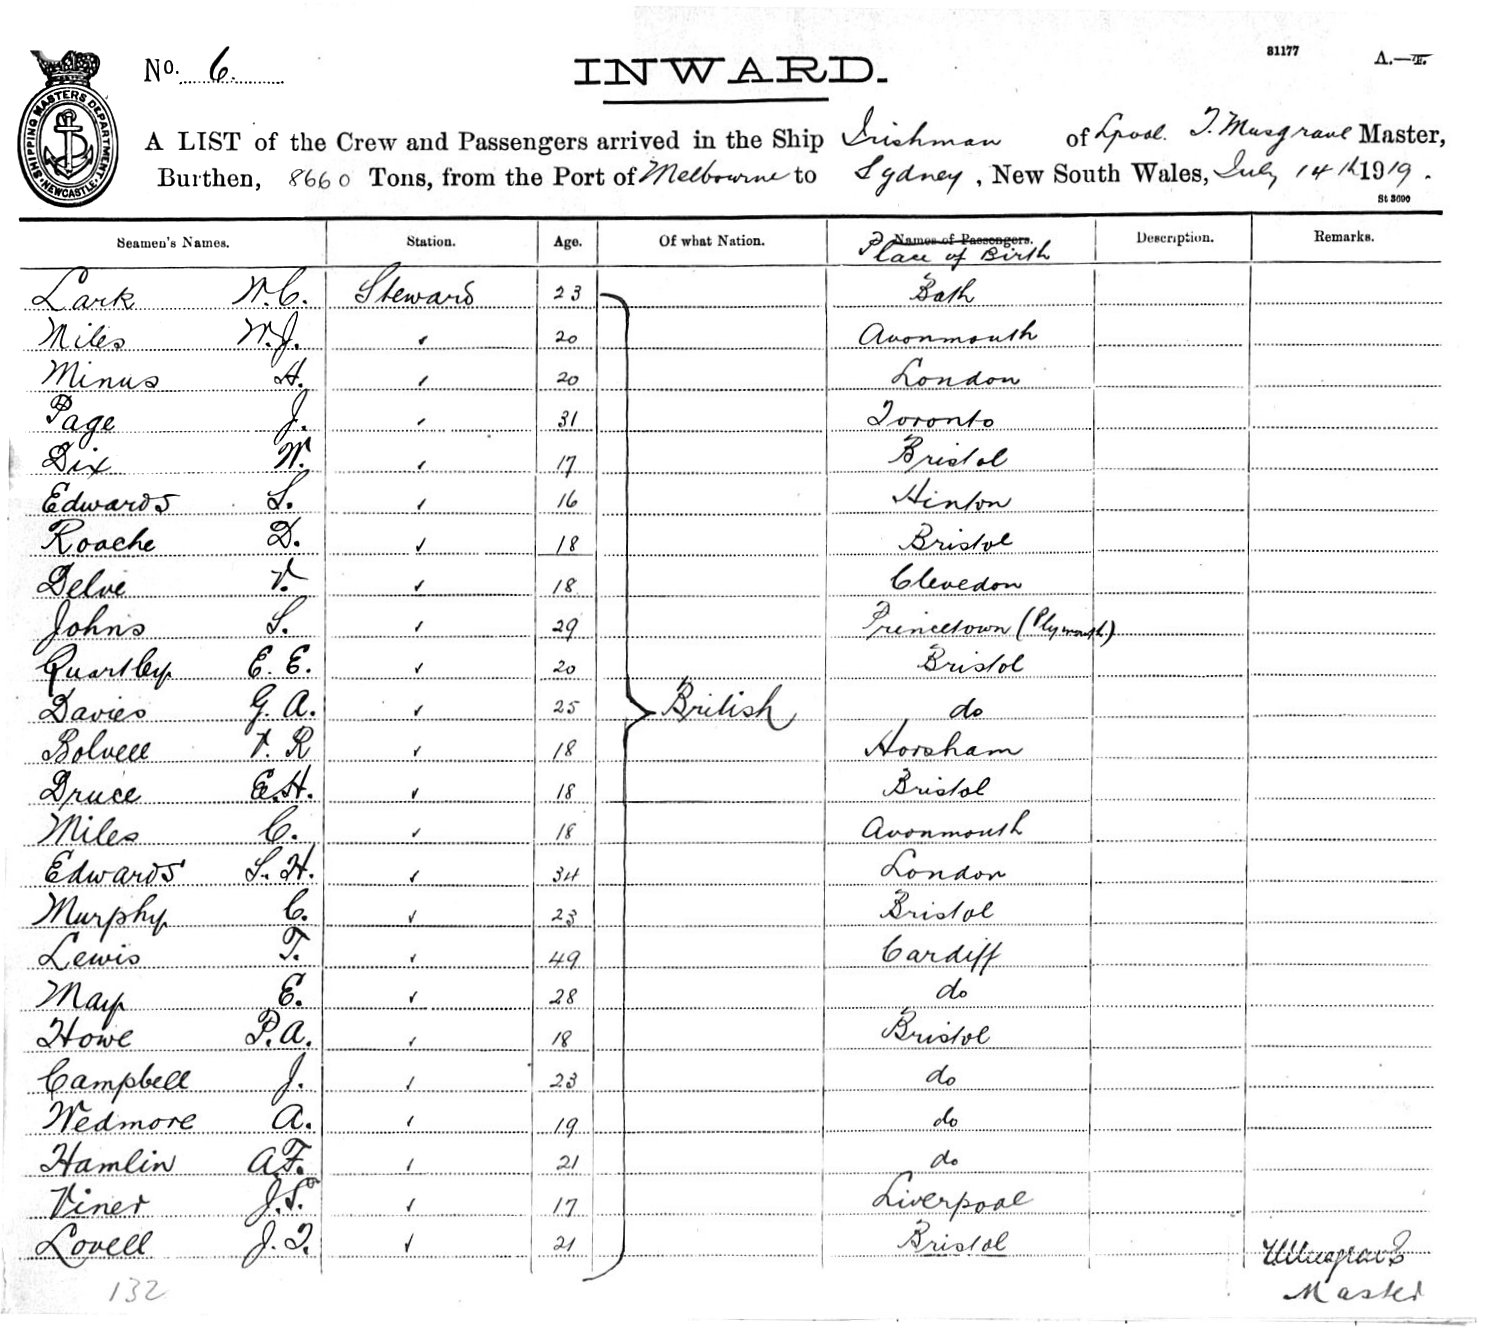 No. 6.
INWARD.
81177
A.—T.
SHIPPING MASTERS DEPARTMENT
NEWCASTLE
A LIST of the Crew and Passengers arrived in the Ship Irishman of Lpool. T. Musgrave Master,
Burthen, 8660 Tons, from the Port of Melbourne to Sydney, New South Wales, July 14th 1919.
St 3690
Seamen's Names. Station. Age. Of what Nation. Names of Passengers. Description. Remarks.
Place of Birth
Lark W.C. Steward 23 Bath
Miles W.J. ✓ 20 Avonmouth
Minus H. ✓ 20 London
Page J. ✓ 31 Toronto
Dix W. ✓ 17 Bristol
Edwards S. ✓ 16 Hinton
Roache D. ✓ 18 Bristol
Delve V. ✓ 18 Clevedon
Johns S. ✓ 29 Princetown (Plymouth.)
Quartley E. E. ✓ 20 Bristol
Davies G. A. ✓ 25 British do
Bolwell V. R ✓ 18 Horsham
Druce E.H. ✓ 18 Bristol
Miles C. ✓ 18 Avonmouth
Edwards S. H. ✓ 34 London
Murphy C. ✓ 23 Bristol
Lewis T. ✓ 49 Cardiff
May E. ✓ 28 do
Howe P.A. ✓ 18 Bristol
Campbell J. ✓ 23 do
Wedmore A. ✓ 19 do
Hamlin A.F. ✓ 21 do
Viner J.S. ✓ 17 Liverpool
Lovell J. T. ✓ 21 Bristol
132
Master